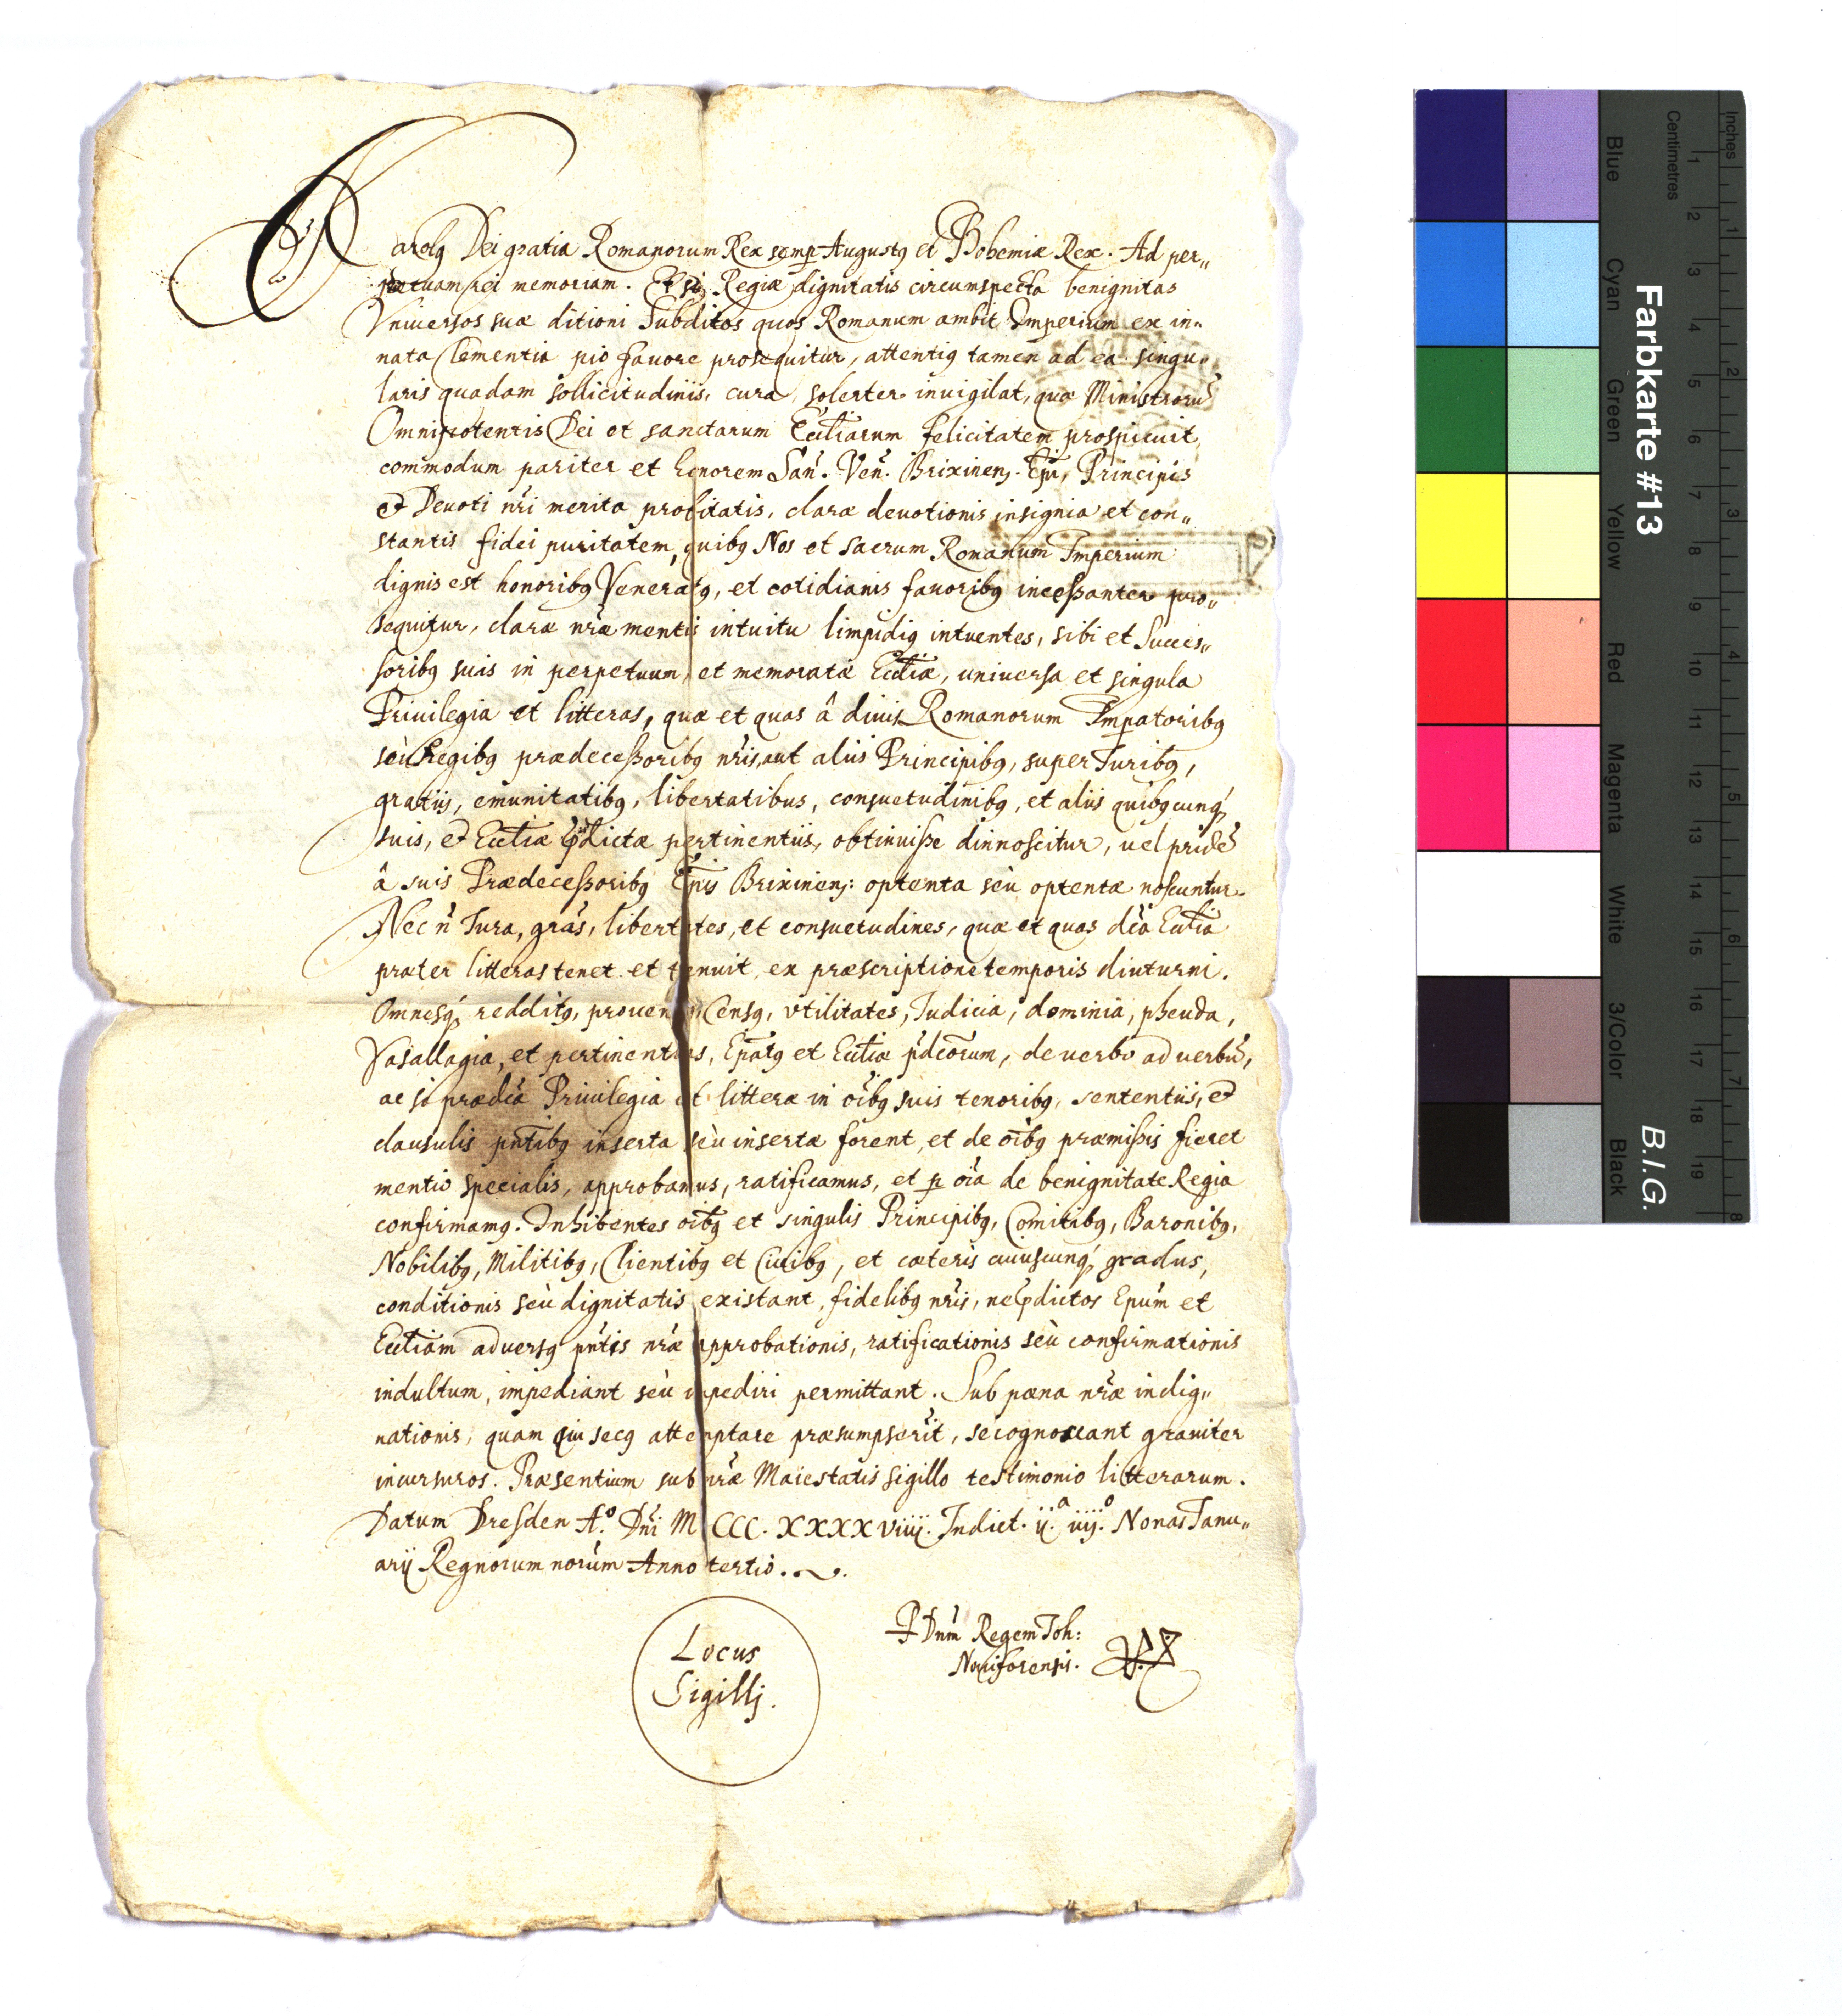 Carolꝰ Dei gratia Romanorum Rex semp Augustꝰ et Bohemiæ Rex. Ad per„
petuam rei memoriam. Etsi Regiæ dignitatis circumspecta benignitas
Vniuersos suæ ditioni Subditos quos Romanum ambit Imperium ex in„
nata Clementia pio fauore prosequitur, attentiꝰ tamen ad ea singu„
laris quadam sollicitudinis, cura, solerter inuigilat, quæ Ministrorũ
Omnipotentis Dei et sanctarum Eccliarum felicitatem prospiciunt
commodum pariter et honorem San. Ven. Brixinens. Epi, Principis
et Deuoti nri merita probitatis, claræ deuotionis insignia et con„
stantis fidei puritatem, quibꝰ Nos et Sacrum Romanum Imperium
dignis est honoribꝰ Veneratꝰ, et cotidianis fauoribꝰ incessanter pro„
sequitur, claræ nræ mentis intuitu limpidiꝰ intuentes, sibi et Succes„
soribꝰ suis in perpetuum, et memoratæ Eccliæ, uniuersa et singula
Priuilegia et litteras, quæ et quas â diuis Romanorum Impatoribꝰ
seù Regibꝰ prædecessoribꝰ nris, aut aliis Principibꝰ, super Iuribꝰ,
gratiis, emunitatibꝰ, libertatibus, consuetudinibꝰ, et aliis quibꝰcunq́,
suis, et Eccliæ pdictæ pertinentiis, obtinuisse dinnoscitur, uel pridẽ
â suis Prædecessoribꝰ Epis Brixinens: optenta seù optentæ noscuntur.
Nec ñ Iura, gras, libertates, et consuetudines, quæ et quas dca Ecclia
præter litteras tenet et tenuit, ex præscriptione temporis diuturni.
Omnesq́, redditꝰ, prouen Censꝰ, vtilitates, Iudicia, dominia, pheuda,
Vasallagia, et pertinentias, Epatꝰ et Eccliæ pdcorum, de uerbo ad uerbũ,
ac si prædca Priuilegia et litteræ in oibꝰ suis tenoribꝰ, sententiis, et
clausulis pntibꝰ inserta seù insertæ forent, et de oibꝰ præmissis fieret
mentio specialis, approbamus, ratificamus, et p oia de benignitate Regia
confirmamꝰ. Inhibentes oibꝰ et singulis Principibꝰ, Comitibꝰ, Baronibꝰ,
Nobilibꝰ, Militibꝰ, Clientibꝰ et Ciuibꝰ, et cæteris cuiuscunq́, gradus,
conditionis seù dignitatis existant, fidelibꝰ nris, ne pdictos Epum et
Eccliam aduersꝰ pntis nræ approbationis, ratificationis seù confirmationis
indultum, impediant seù impediri permittant. Sub pæna nræ indig„
nationis, quam qui secꝰ attemptare præsumpserit, se cognoscant grauiter
incursuros. Præsentium sub nræ Maiestatis sigillo testimonio litterarum.
Datum Dresden A.º Dni M CCC. XXXX viiij. Indict. ij.ª iiij.º Nonas Ianu„
arij Regnorum norum Anno tertio.
P Dnm Regem Ioh:
Nouiforensis.
Locus
Sigilli.
Farbkarte #13
B.I.G.
Inches
Centimetres
1 2 3 4 5 6 7 8 9 10 11 12 13 14 15 16 17 18 19
1 2 3 4 5 6 7 8
Blue
Cyan
Green
Yellow
Red
Magenta
White
3/Color
Black